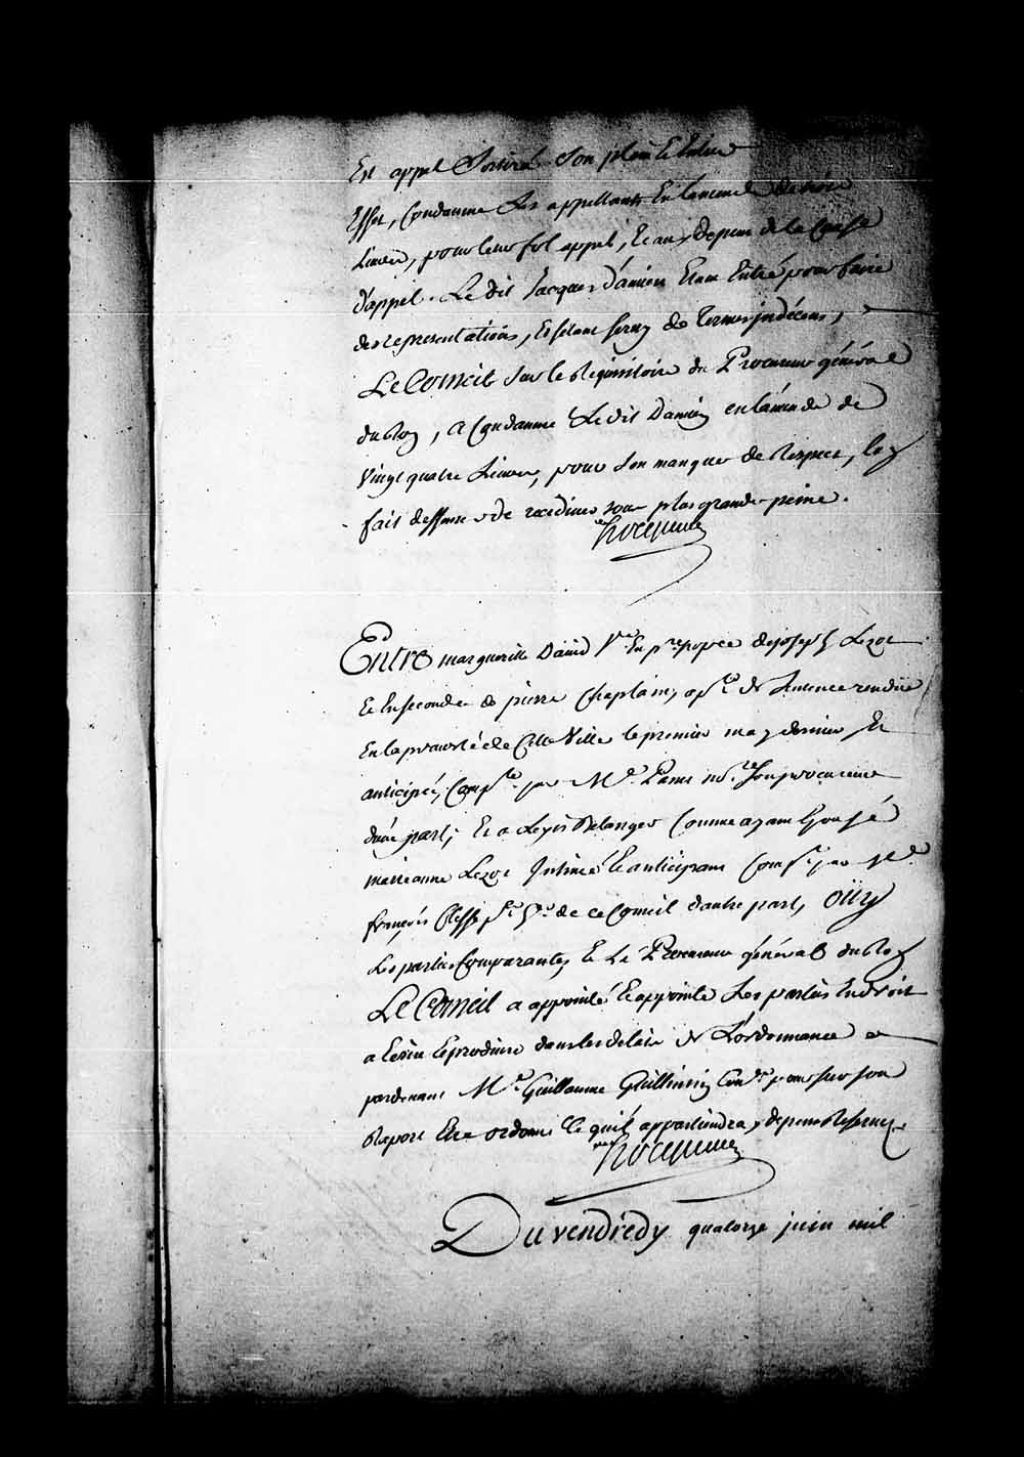 Est appel Sortira Son plein Et Entier
Effet, Condamne Les appellants En Lamende de trois
Livres, pour leur fol appel, Et aux depens de la Cause
d'appel. Le dit Jacques Damien Etant Entré pour faire
des representations, Et setant servy de termes indécens,
Le Conseil Sur le Requisitoire du Procureur général
du Roy, a Condamné Ledit Damien en lámende de
Vingt quatre Livres, pour Son manque de Respect, luy
fait deffense de recidiver sous plus grande peine.
hocquart
Entre marguerite David Ve. En pre. nopce de joseph Lezot
Et En seconde de pierre Chaplain, aplte de Sentence rendüe
En la prevosté de Cette Ville le premier may dernier Et
anticipée, Compte. par Me. Panet nore. Son procureur
dúne part; Et Belanger Comme ayant Epousé
marianne Lezot Intimé Et anticipant Compt. par Me.
françois de ce Conseil dautre part, Oüy
Les parties Comparantes, Et Le Procureur général du Roy
Le Conseil a appointé Et appointe Les parties En droit
a Ecrire Et produire dans les delais de L'ordonnance et
pardevant Me. Guillaume Guillimin Coner. pour sur son
Raport Etre ordonné Ce quil appartiendra, depens Reservez.
hocquart
Du vendredy quatorze juin mil